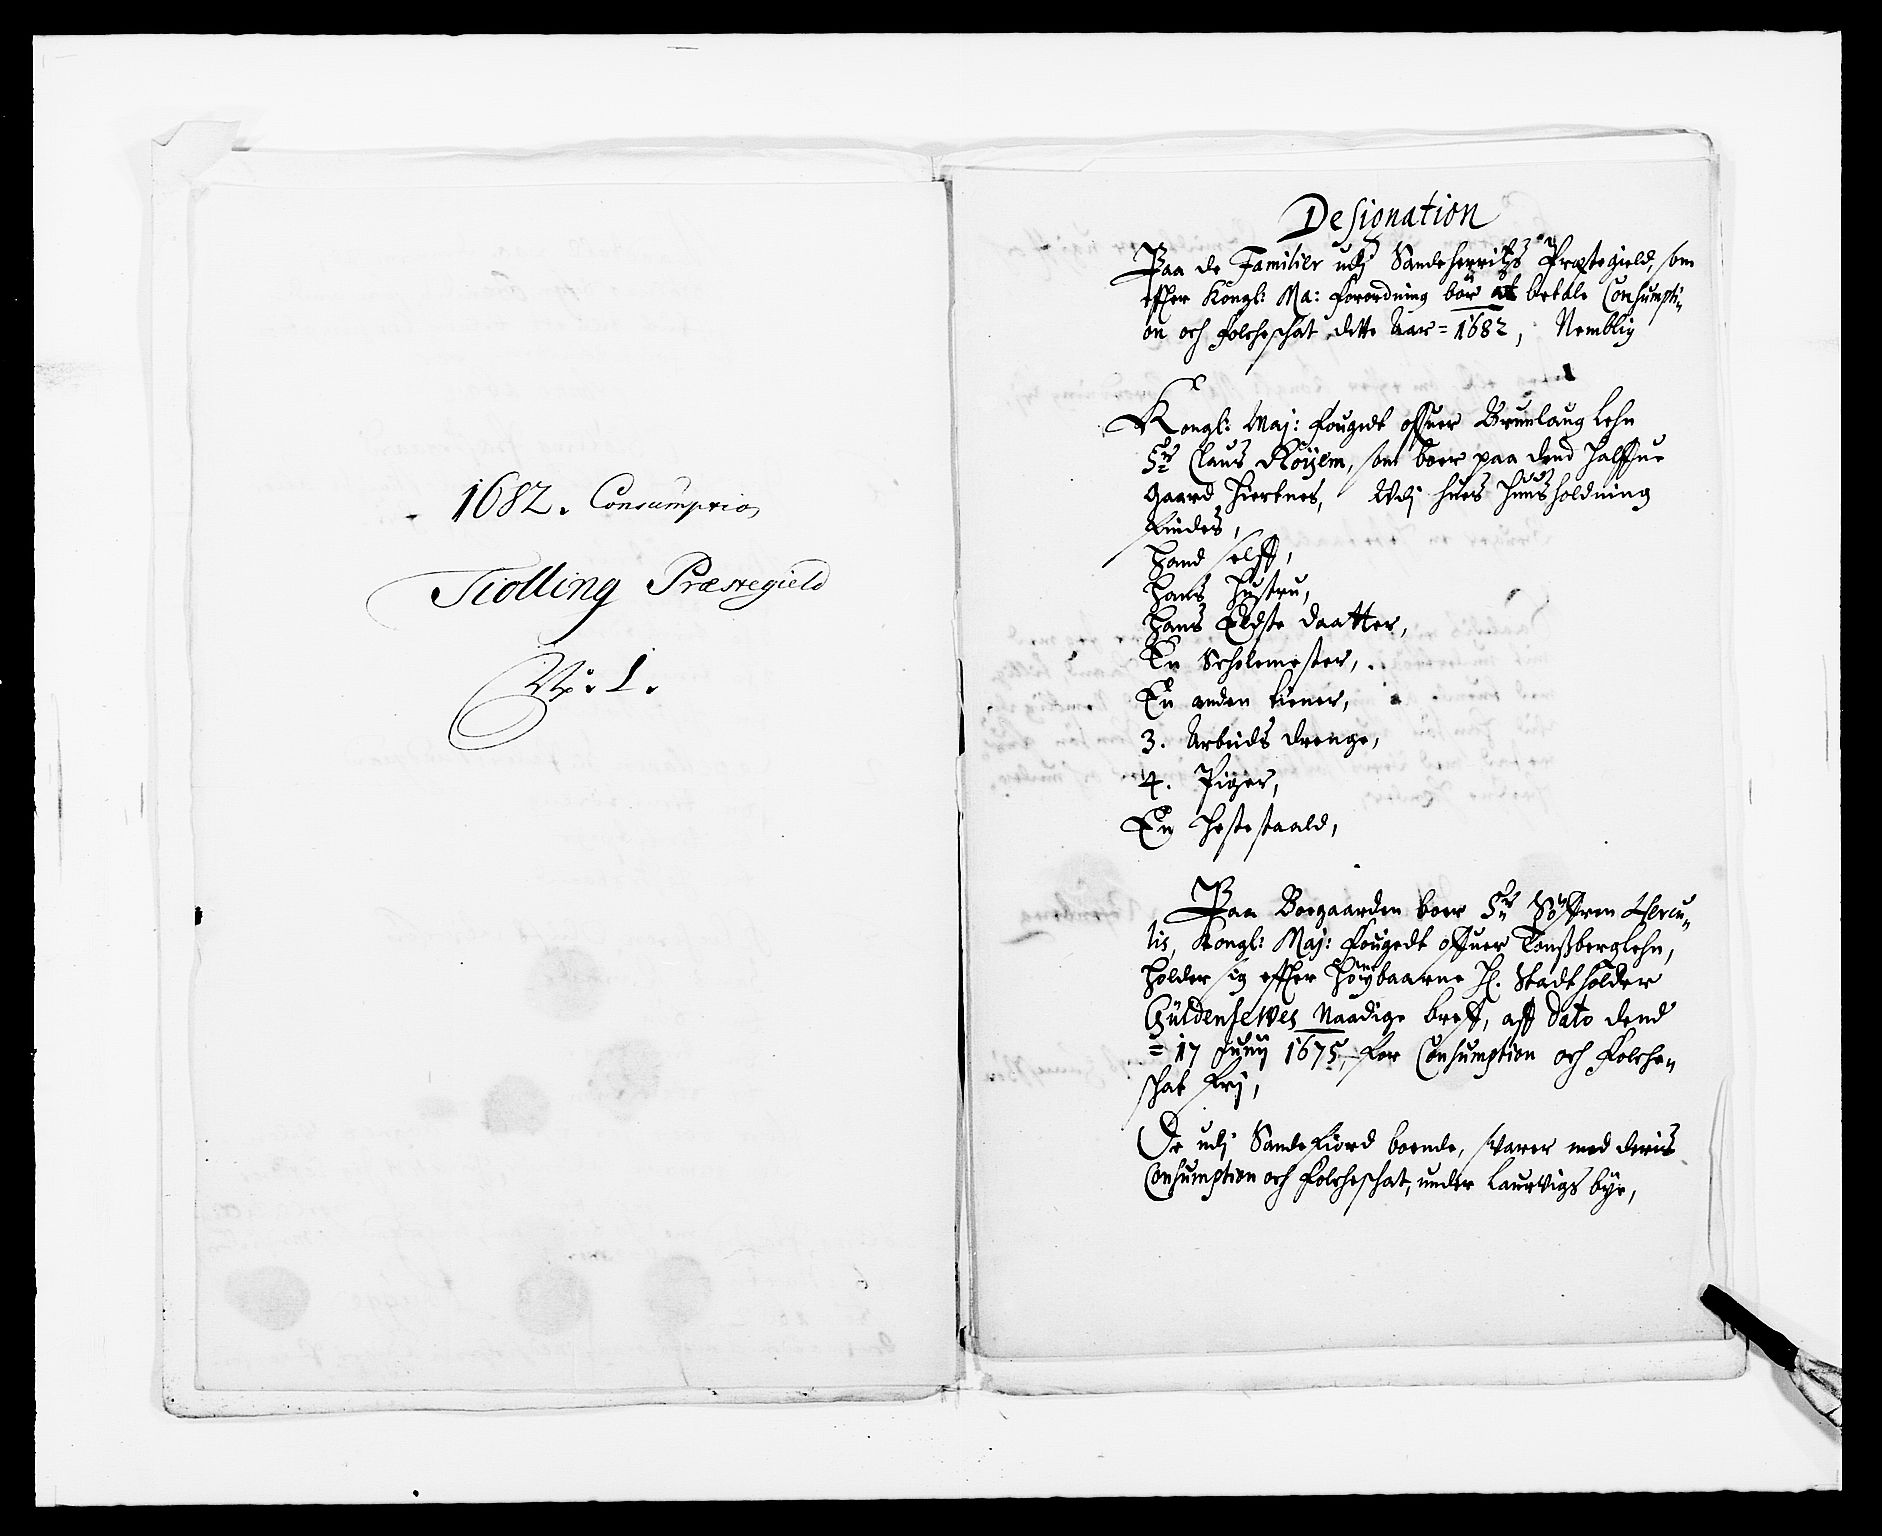 1682. Consumption
Tiolling Præstegield
No. 1.
Designation
Paa de Familier udj Sandeherritz Præstegield, som
effter Kongl: Ma: forordning bör at betale Consumpti-
on och folcheschat dette Aar = 1682, Nemblig
1
Kongl: Maj: fougedt offuer Brunlaug Lehn
Sr Claus Röyem, som boer paa dend halffue
gaard Hiertnes, Udj hues Huusholdning
findes,
Hand selff,
Hans Hustru,
Hans Eldste daatter,
En Scholemester,
En anden tiener,
3. Arbeids drenge,
4. Piger,
En Hestestaald,
Paa Boegaarden boer Sr Söffren Hercu-
lis, Kongl: Maj: fougedt offuer Tonßberglehn,
holder sig effter Höybaarne H. Stadtholder
Güldenlewes Naadige breff, aff dato dend
= 17 Junij 1675, for Consumption och folche-
schat frj,
De udj Sandefiord boende, svarer med deris
Consumption och folcheschat, under Laurvigs bye,